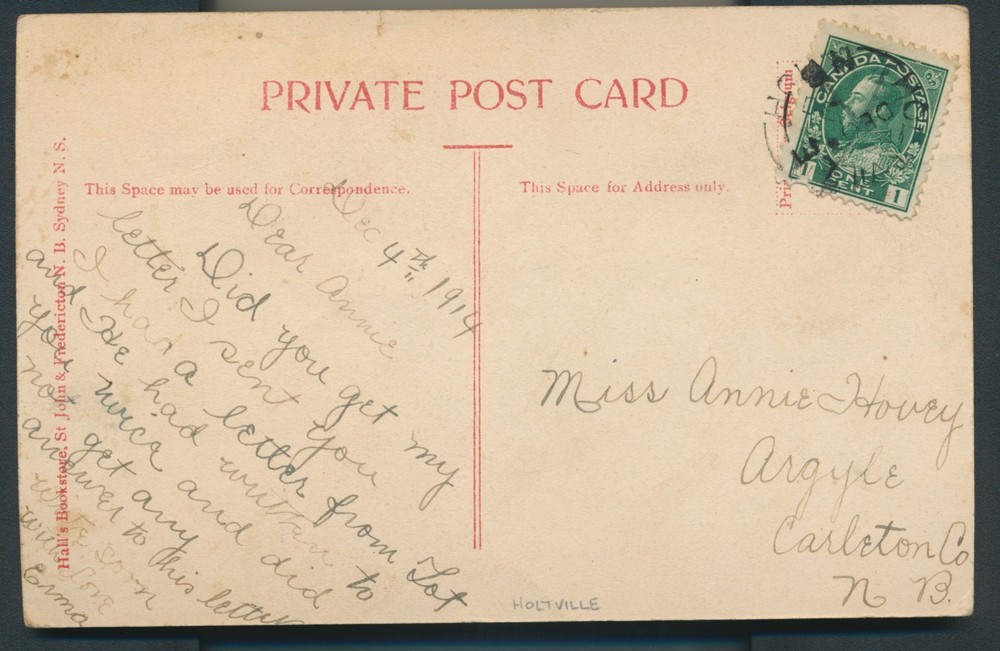 PRIVATE POST CARD
This Space may be used for Correspondence.
This Space for Address only.
Hall's Bookstore, St John & Fredericton N. B. Sydney N. S.
CANADA POSTAGE
ONE CENT
1 1
Dec 4th 1914
Dear Annie
Did you get my
letter I sent you
I had a letter from Lot
and He had written to
you twice and did
not get any
answer to this letter
write soon
with love
Erma
Miss Annie Hovey
Argyle
Carleton Co
N B.
HOLTVILLE